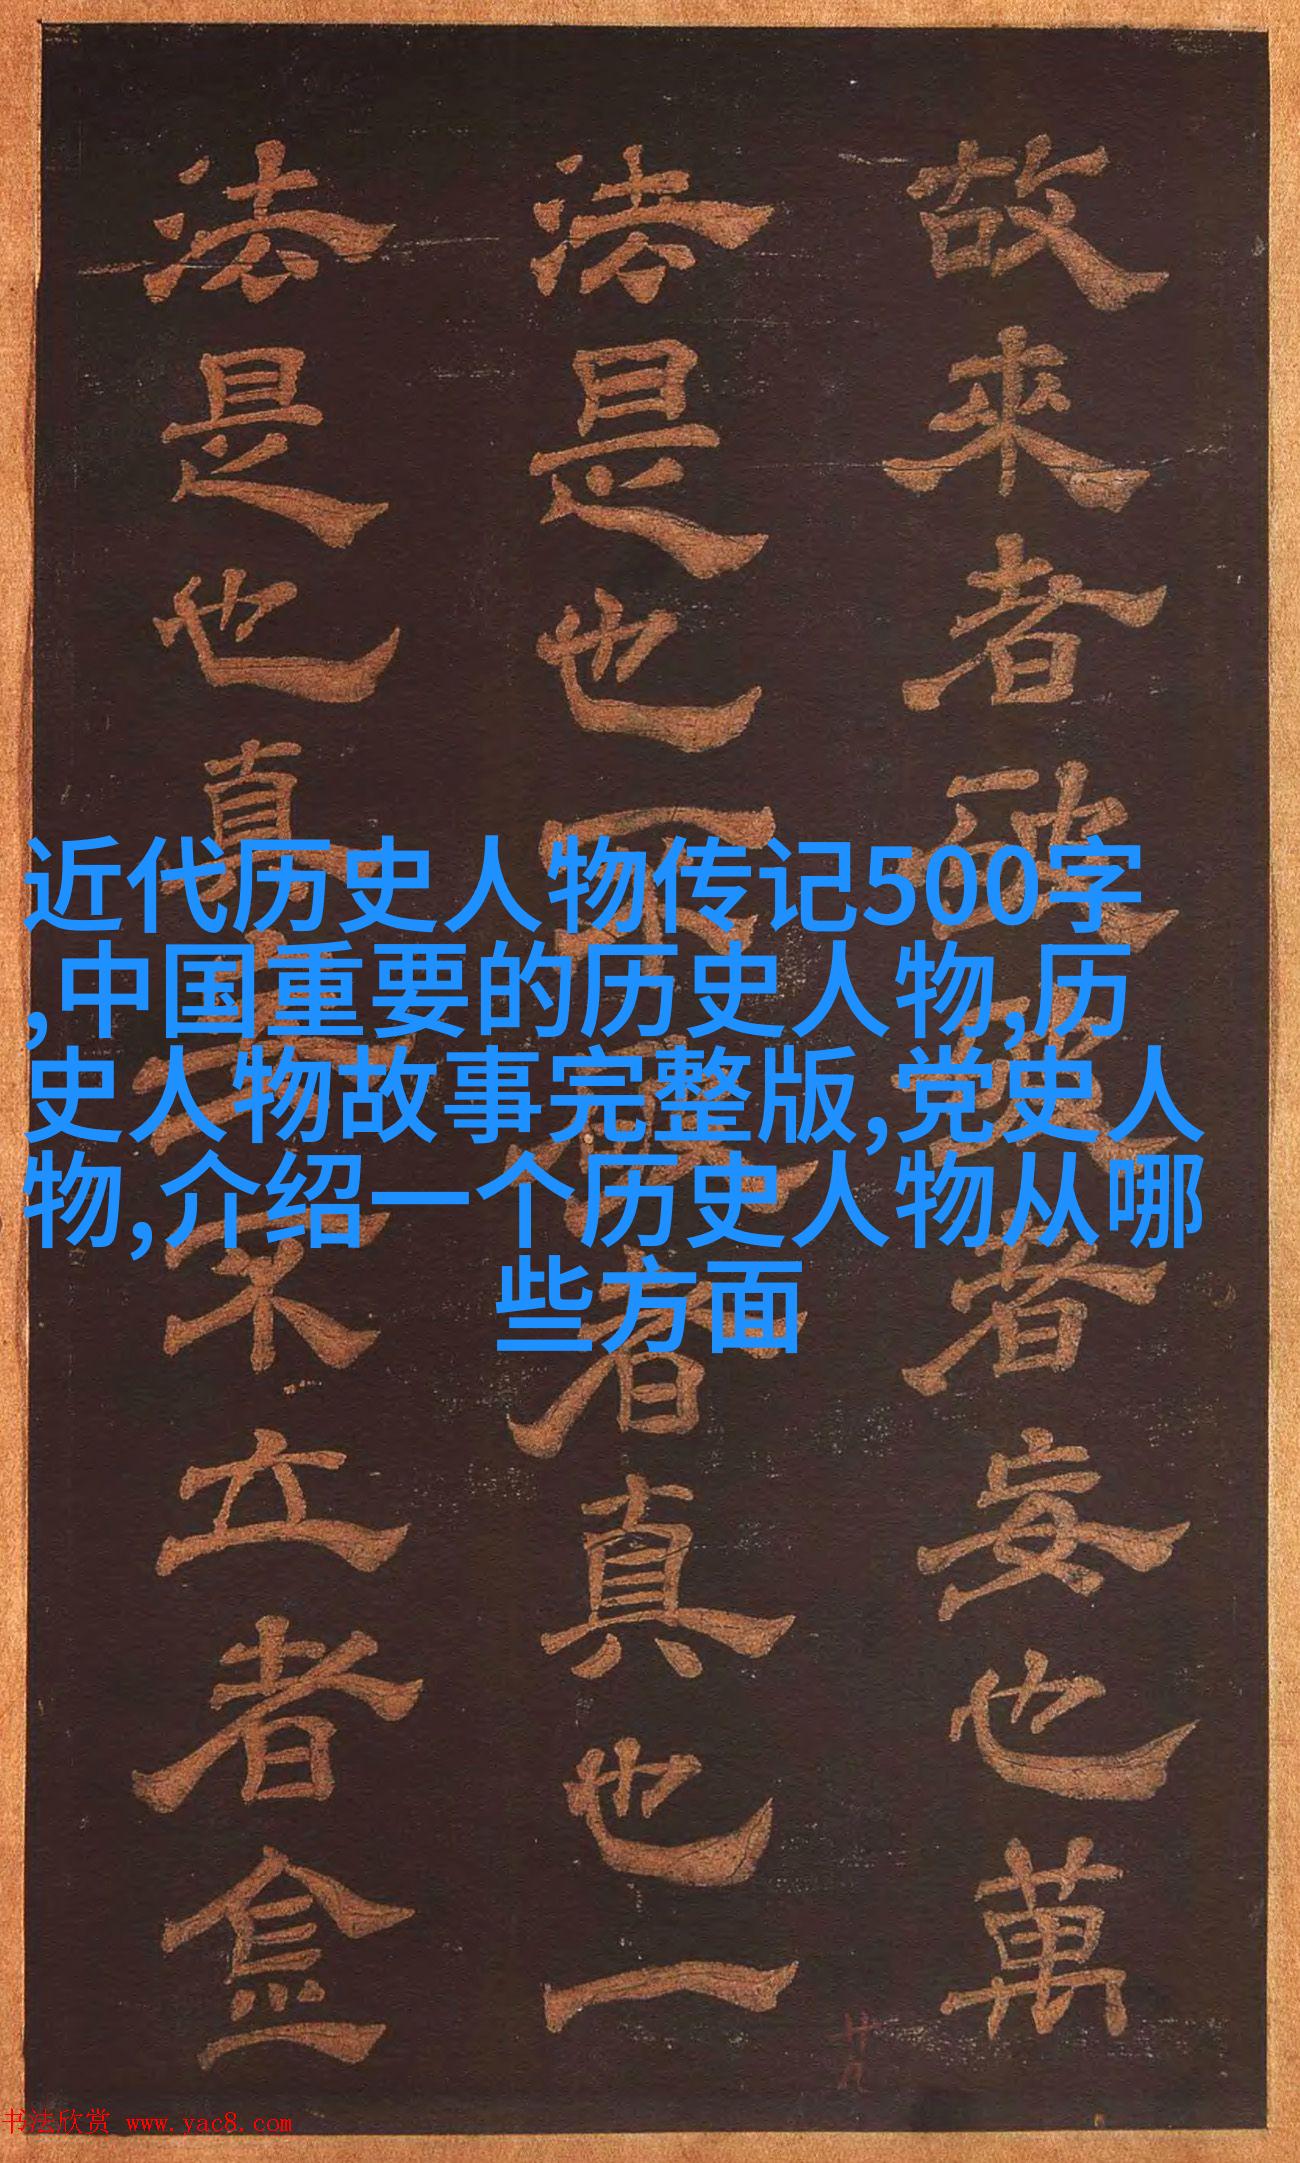 故来者破破者妄也萬
法是也不破者真也一
法是也真妄不立者
近代历史人物传记500字
,中国重要的历史人物,历
史人物故事完整版,党史人
物,介绍一个历史人物从哪
些方面
书法欣赏 www.yac8.com